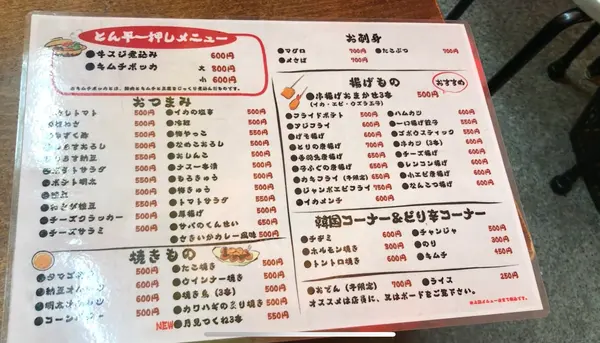 とん平一押しメニュー
●牛スジ煮込み 600円
●キムチポッカ 大 800円
小 600円
お刺身
●マグロ 700円
●たこぶつ 700円
●〆さば 700円
おつまみ
トマト 500円
500円
500円
500円
納豆 500円
サラダ 500円
●ポテト明太 500円
500円
500円
●チーズクラッカー
●チーズサラミ
●イカの塩辛 500円
●冷奴
●梅やっこ 550円
●なめこおろし 500円
●おしんこ 500円
●ナス一本漬 500円
●もろきゅう 500円
●梅きゅう 500円
●トマトサラダ 550円
●厚揚げ 500円
●サバのくんせい 650円
●さきいかカレー風味 500円
揚げもの
おすすめ
●串揚げおまかせ3本 500円
(イカ・エビ・ウズラ玉子)
●フライドポテト 500円
●アジフライ 600円
●げそ揚げ
●とりの唐揚げ 700円
唐揚げ 650円
●子ふぐの唐揚げ 650円
●カキフライ (冬限定) 650円
●ジャンボエビフライ 750円
●イカメンチ 600円
●ハムカツ 600円
●一口揚げ餃子 550円
●ゴボウスティック 550円
●串カツ (3本) 600円
●チーズ揚げ 600円
●レンコン揚げ 600円
●小エビ唐揚げ 600円
●なんこつ揚げ 600円
焼きもの
●タマゴ 500円
●納豆オムレツ 600円
●明太オムレツ 600円
●コーンバター 500円
●たこ焼き 500円
●ウインナー焼き 500円
●焼き鳥 (3本) 500円
●カワハギの炙り焼き 500円
NEW●月見つくね3本 550円
韓国コーナー&ピリ辛コーナー
●チヂミ 600円
●ホルモン焼き 700円
●トントロ焼き 600円
●チャンジャ 500円
●のり 300円
●キムチ 450円
●おでん (冬限定) 700円
●ライス 250円
オススメは店員に、又はボードをご覧下さい。